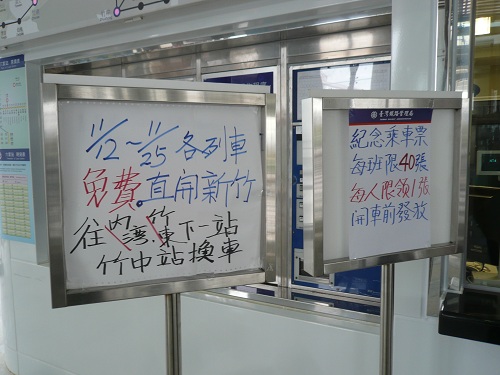 11/12~11/25 各列車
免費。直開新竹
往內灣、竹東下一站
竹中站換車
臺灣鐵路管理局
紀念乘車票
每班限40張
每人限領1張
開車前發放